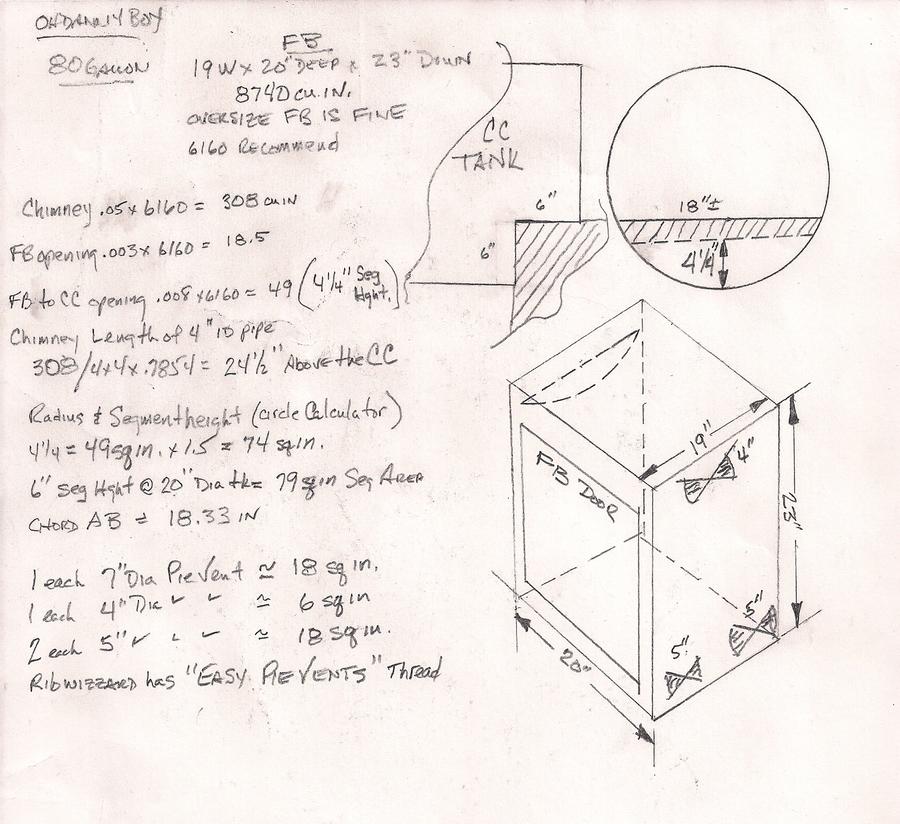 OHDANNY BOY
80 GALLON
FB
19W x 20" DEEP x 23" DOWN
8740 cu.IN.
OVERSIZE FB IS FINE
6160 Recommend
Chimney .05 x 6160 = 308 cu IN
FB opening .003 x 6160 = 18.5
FB to CC opening .008 x 6160 = 49 (4 1/4" Seg Hght.)
Chimney Length of 4" ID pipe
308/4x4x.7854 = 24 1/2" Above the CC
Radius & Segment height (circle Calculator)
4 1/4 = 49 sq in. x 1.5 = 74 sq in.
6" Seg Hght @ 20" Dia tk = 79 sq in Seg AREA
CHORD AB = 18.33 IN
1 each 7" Dia Pie Vent ≅ 18 sq in.
1 each 4" Dia " " ≅ 6 sq in
2 each 5" " " " ≅ 18 sq in.
Ribwizzard has "EASY PIE VENTS" Thread
CC
TANK
6"
6"
18"±
4 1/4"
FB DOOR
19"
4"
23"
5"
5"
20"